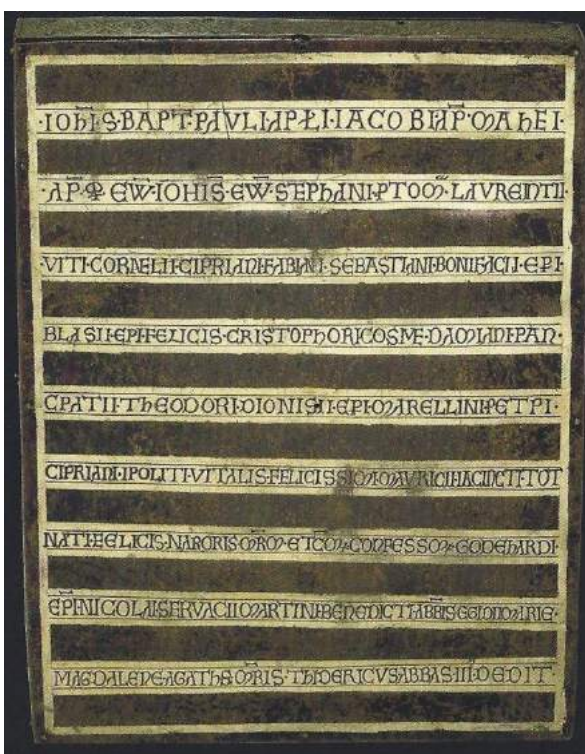 ·IOHIS·BAPT·PAVLI APLI·IACOBI AP·MAHEI·
·AP· EW·IOHIS·EW·STEPHANI·PTOM·LAVRENTII·
VITI·CORNELII·CIPRIANI·FABIANI·SEBASTIANI·BONIFACII·EPI·
BLASII·EPI·FELICIS·CRISTOPHORI COSME·DAMIANI·PAN·
CPATII·THEODORI·DIONISII·EPI·MARELLINI·PETPI·
CIPRIANI·IPOLITI·VITALIS·FELICISSIMI·MAVRICII·IACINCTI·TOT
NATI·FELICIS·NARORIS·MROM·ET CONFESSOR·GODEHARDI·
EPI·NICOLAI SERVACII MARTINI·BENEDICTI ABBIS·EGIDII MARIE·
MAGDALENE AGATHE MRIS·THIDERICVS ABBAS III DEDIT·